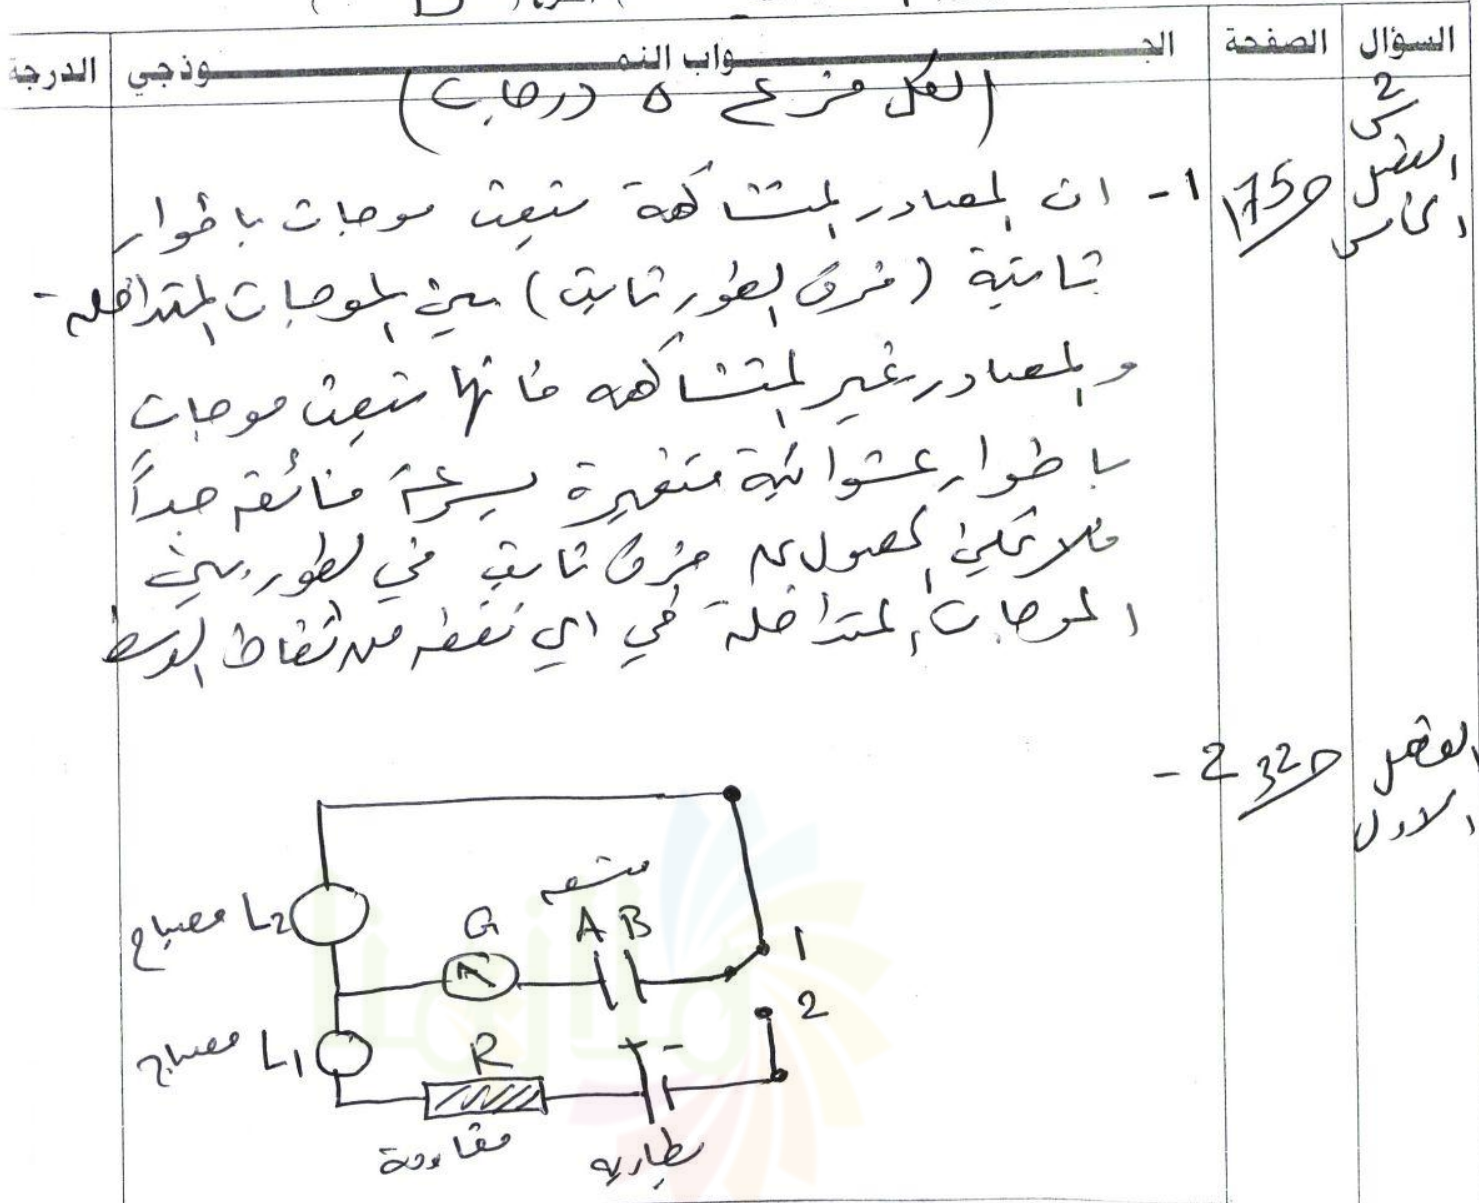 السؤال الصفحة الجـــواب النمـــوذجي الدرجة
(لكل فرع ٥ درجات)
س2
الفصل
الخامس
ص175
1- ان المصادر المتشاكهة تبعث موجات باطوار
ثابتة (فرق الطور ثابت) بين الموجات المتداخلة -
والمصادر غير المتشاكهه فانها تبعث موجات
باطوار عشوائية متغيرة بسرعة فائقه جداً
فلا يمكن الحصول على فرق ثابت في الطور بين
الموجات المتداخلة في اي نقطه من نقاط الوسط
الفصل
الاول
ص32
2 -
متسعه
مصباح L2
G
A B
1
2
مصباح L1
R
+ -
مقاومة
بطاريه